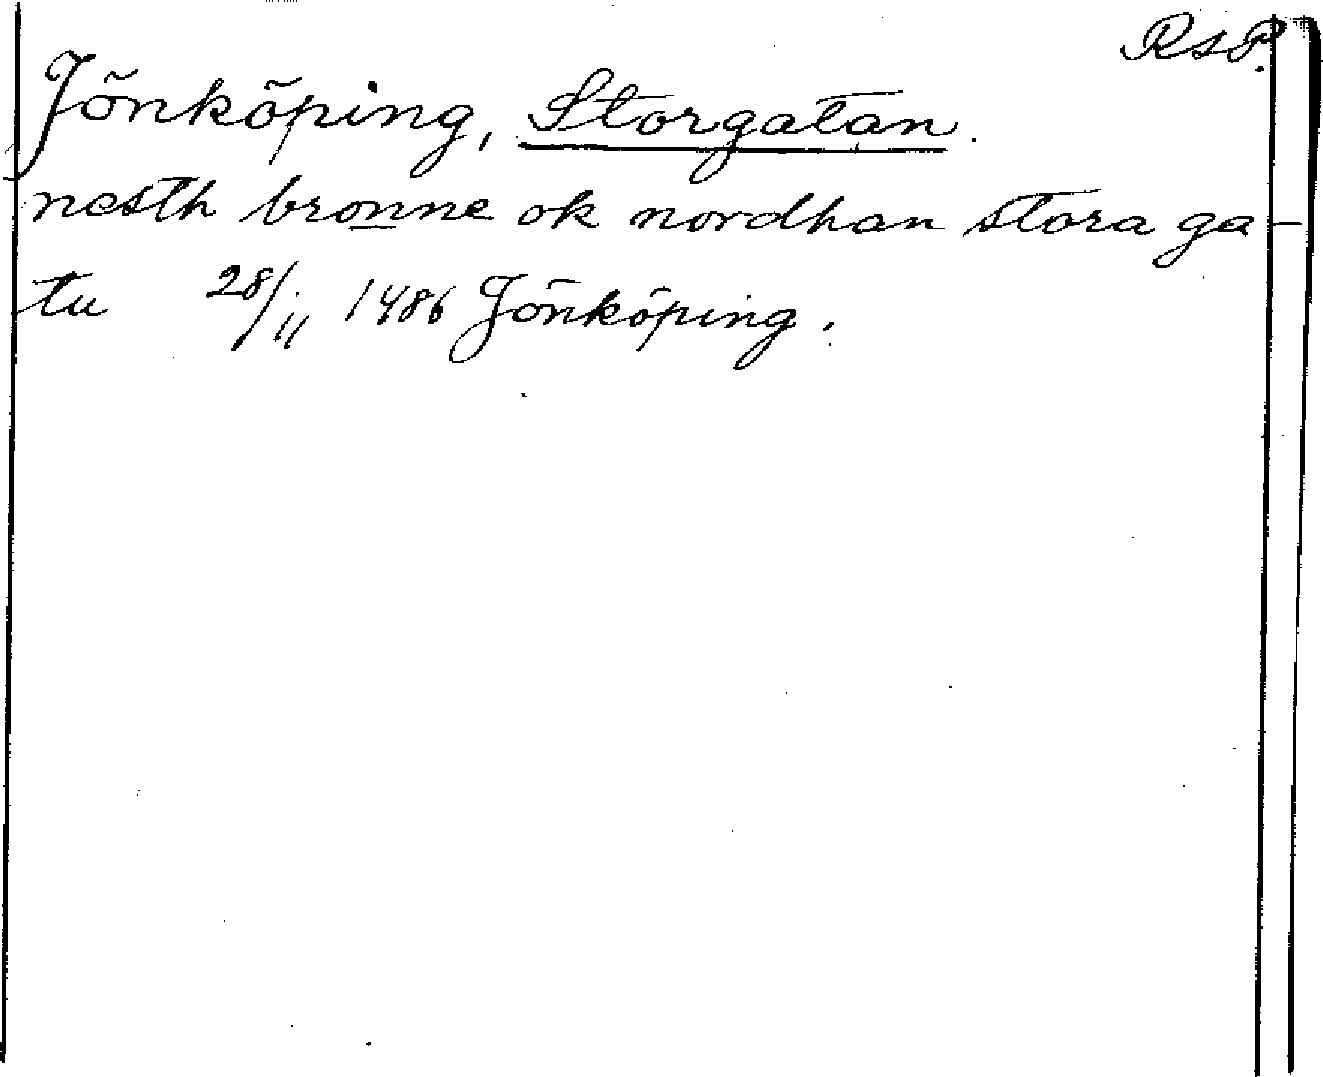 RSP.
Jönköping, Storgatan.
nesth bronne ok nordhan stora ga-
tu 28/11 1486 Jönköping.